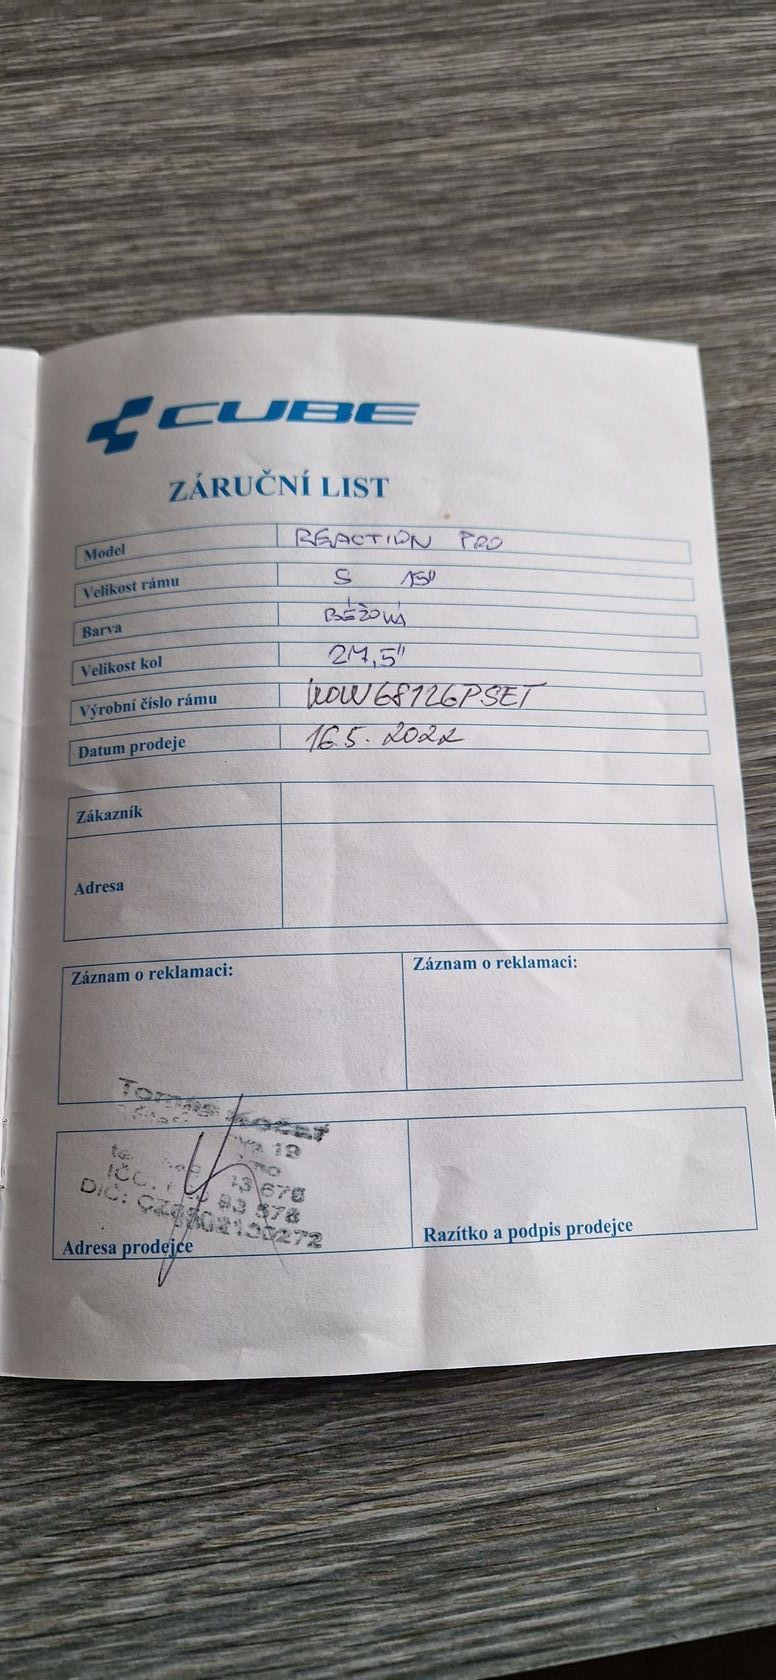 CUBE
ZÁRUČNÍ LIST
Model REACTION PRO
Velikost rámu S 15"
Barva BÉŽOVÁ
Velikost kol 27,5"
Výrobní číslo rámu WOW68126PSET
Datum prodeje 16.5.2022
Zákazník
Adresa
Záznam o reklamaci: Záznam o reklamaci:
Tomáš
19
678
IČO: 83 678
DIČ:
Adresa prodejce Razítko a podpis prodejce